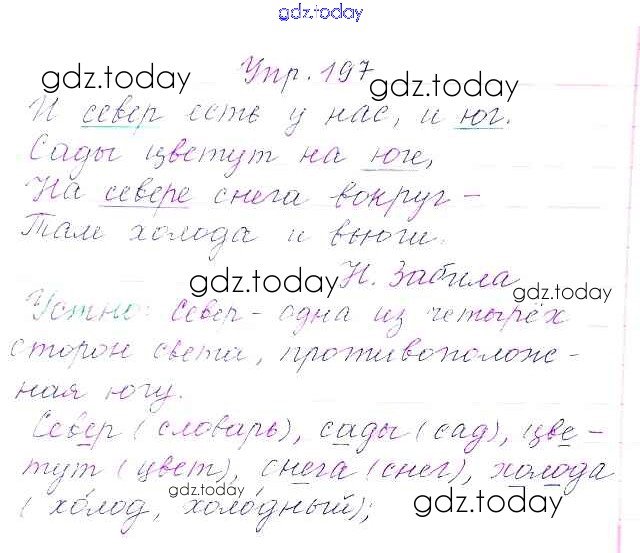 gdz.today
Упр. 197
gdz.today gdz.today
И север есть у нас, и юг.
Сады цветут на юге,
На севере снега вокруг –
Там холода и вьюги.
gdz.today Н. Забила gdz.today
Устно: Север - одна из четырёх
сторон света, противополож-
ная югу.
Север (словарь), сады (сад), цве-
тут (цвет), снега (снег), холода
gdz.today gdz.today
(хо́лод, холо́дный);